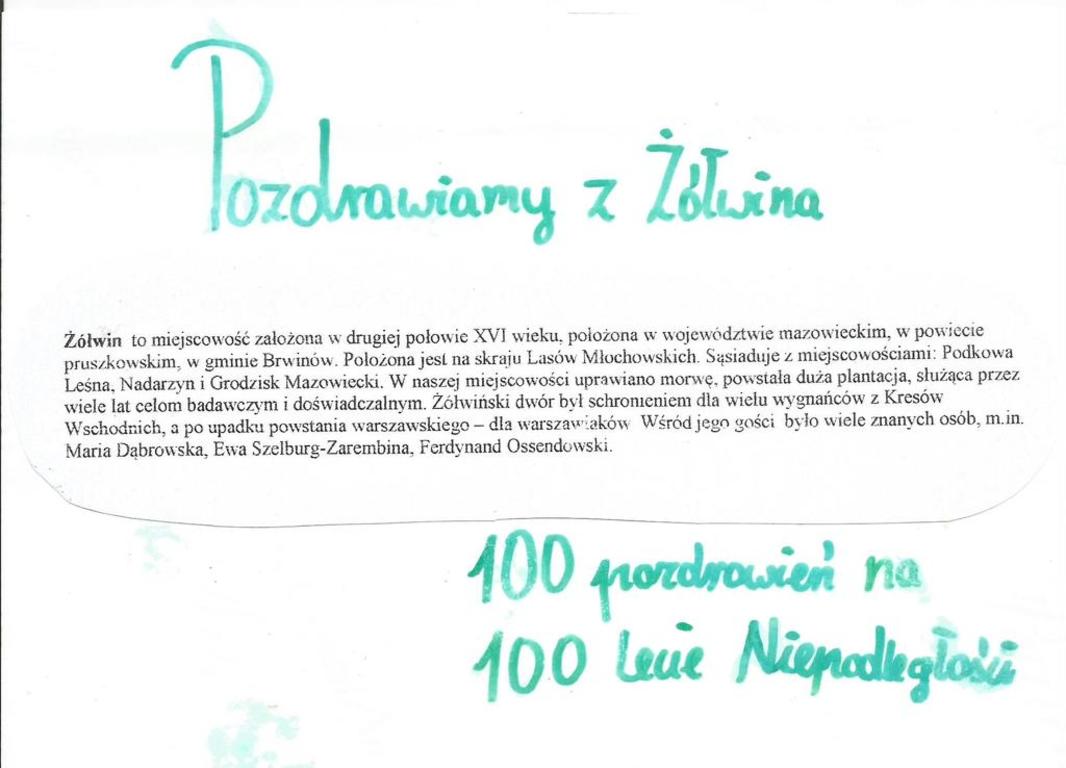 Pozdrawiamy z Żółwina
Żółwin to miejscowość założona w drugiej połowie XVI wieku, położona w województwie mazowieckim, w powiecie
pruszkowskim, w gminie Brwinów. Położona jest na skraju Lasów Młochowskich. Sąsiaduje z miejscowościami: Podkowa
Leśna, Nadarzyn i Grodzisk Mazowiecki. W naszej miejscowości uprawiano morwę, powstała duża plantacja, służąca przez
wiele lat celom badawczym i doświadczalnym. Żółwiński dwór był schronieniem dla wielu wygnańców z Kresów
Wschodnich, a po upadku powstania warszawskiego – dla warszawiaków Wśród jego gości było wiele znanych osób, m.in.
Maria Dąbrowska, Ewa Szelburg-Zarembina, Ferdynand Ossendowski.
100 pozdrowień na
100 lecie Niepodległości